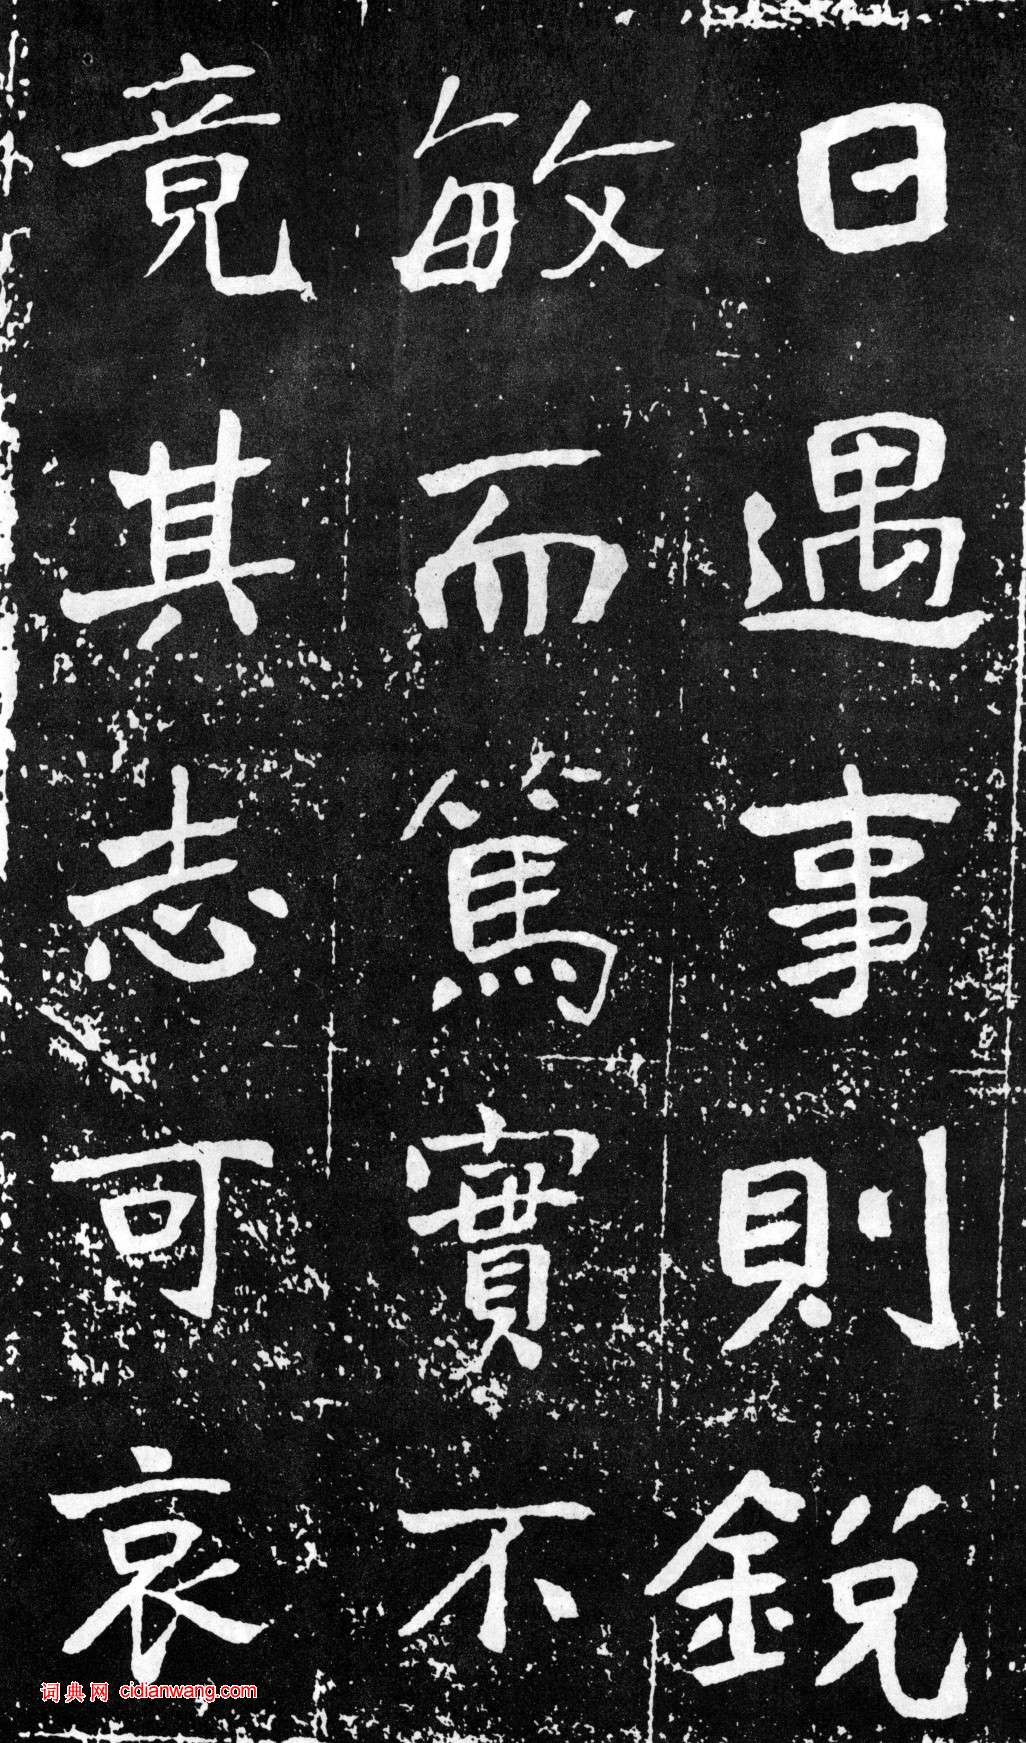 日遇事則銳
敏而篤實不
竟其志可哀
词典网 cidianwang.com